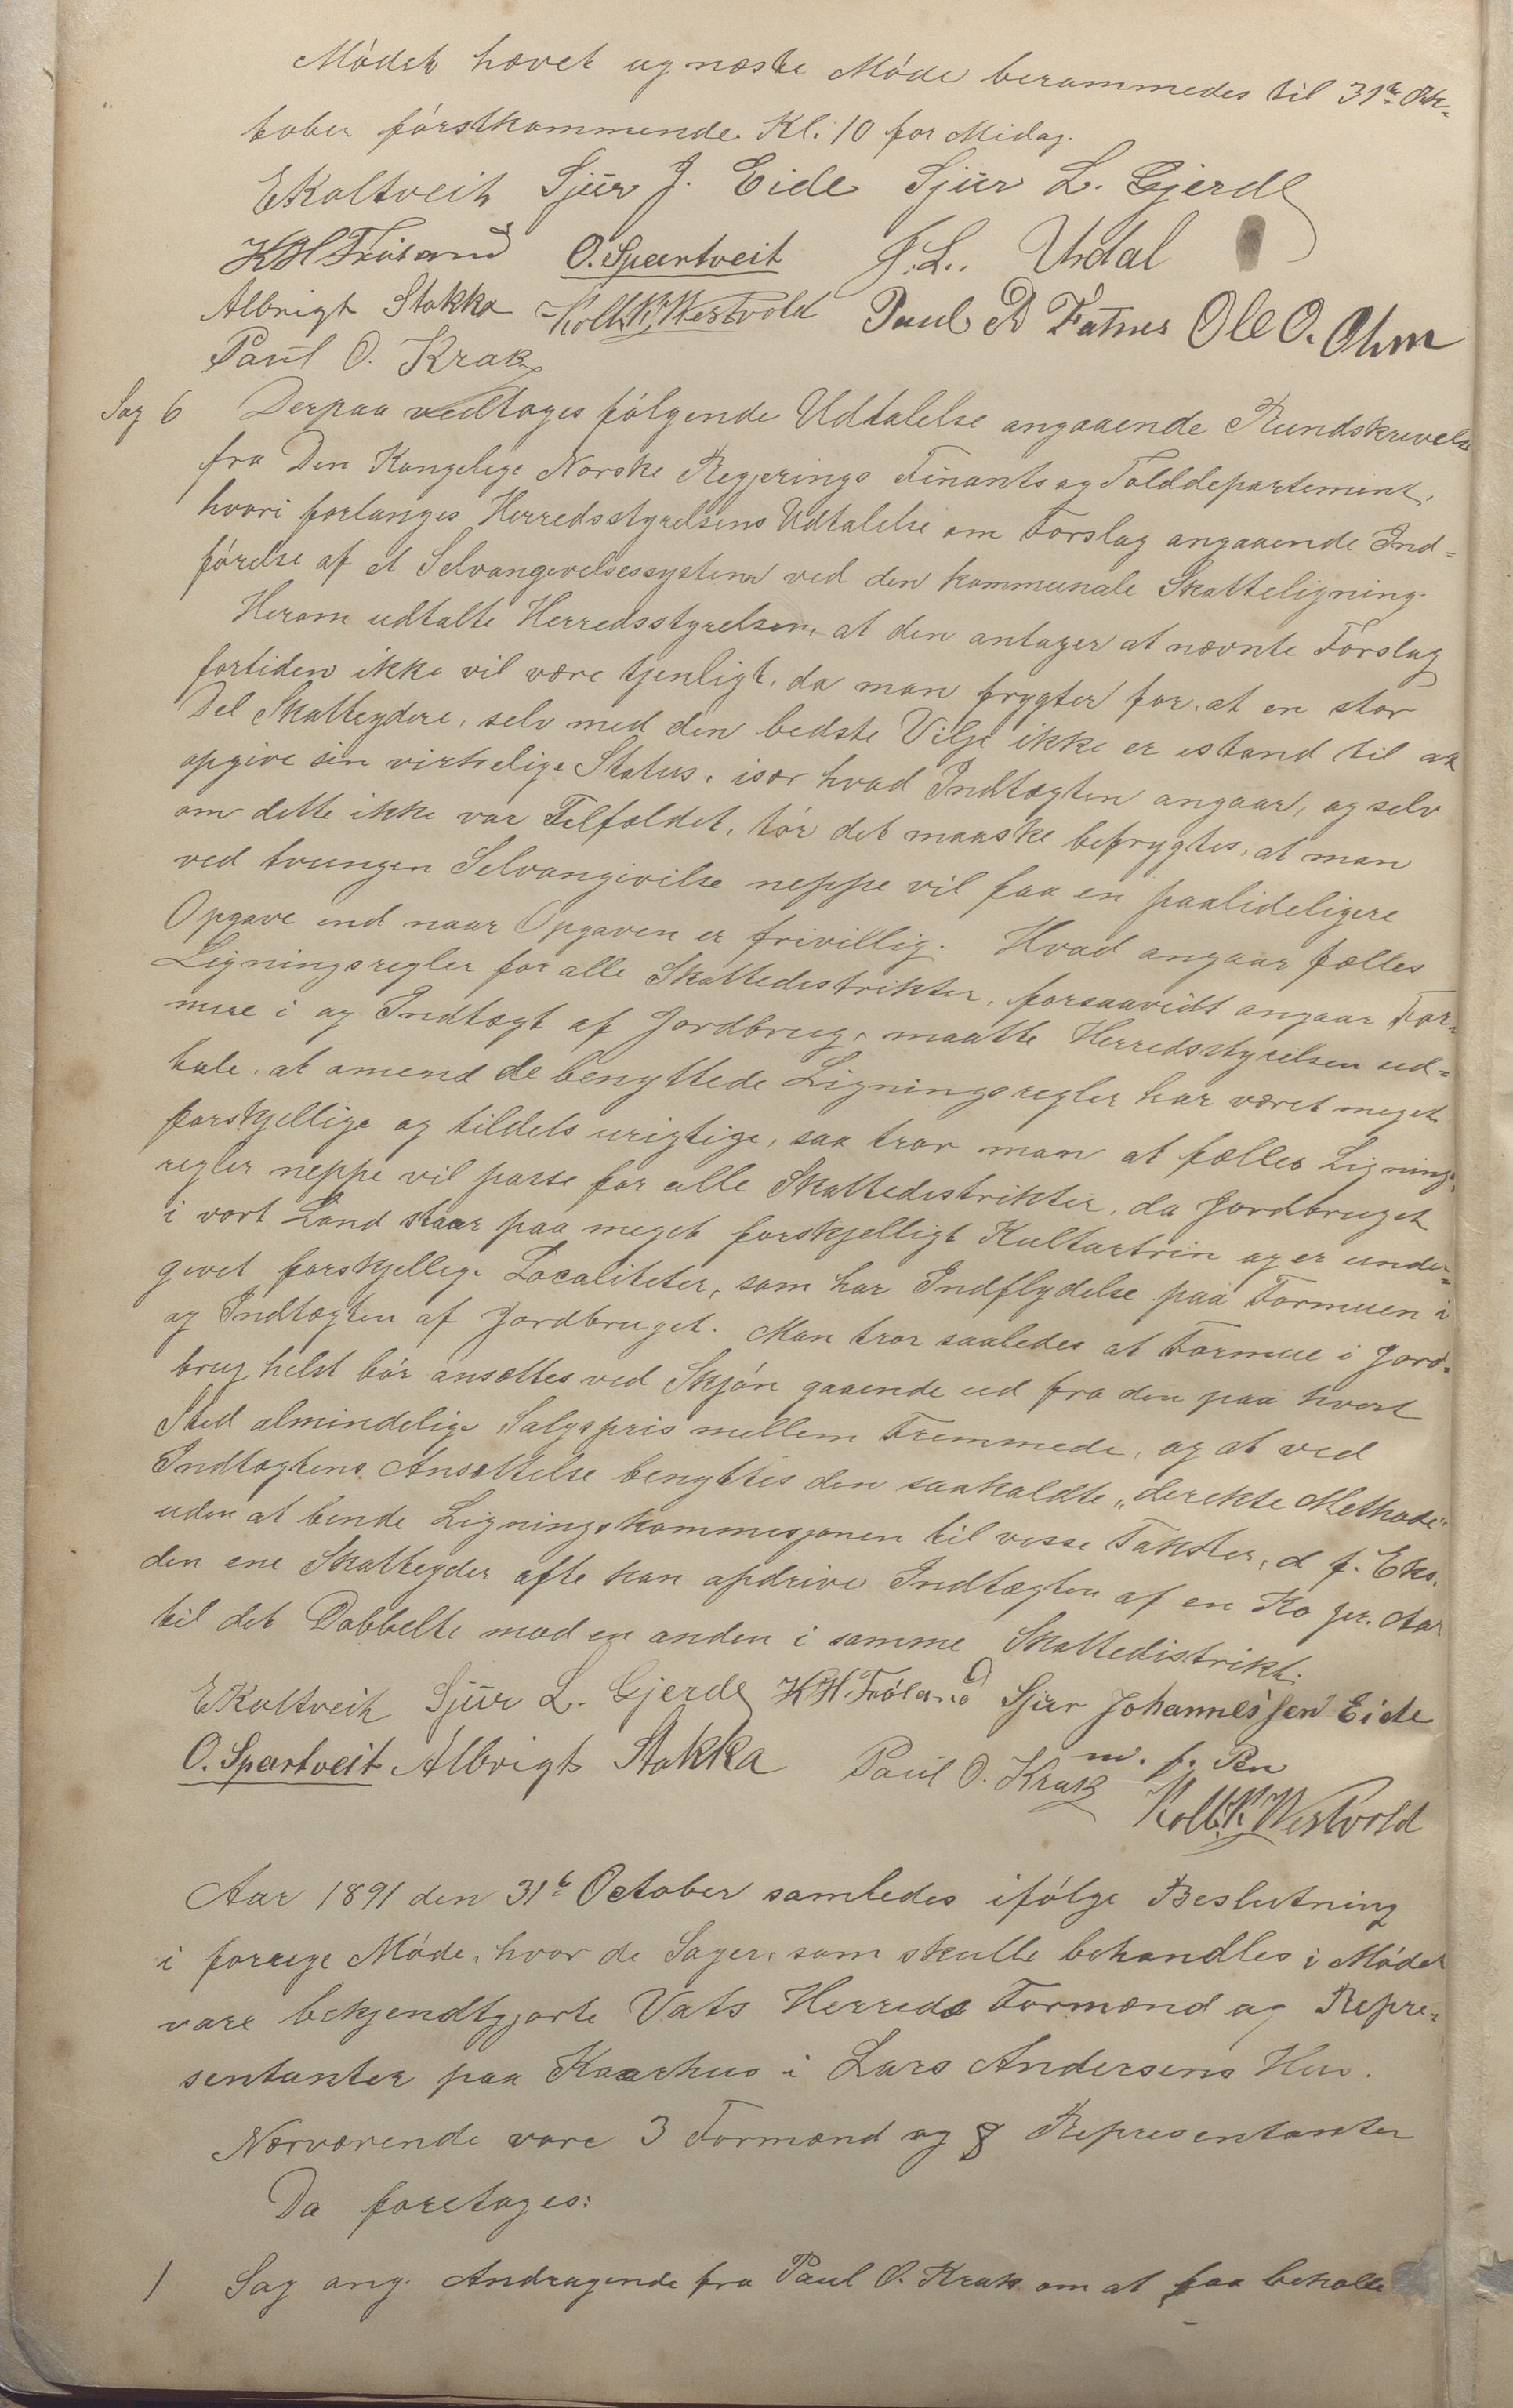 Mødet hævet og næste Møde berammedes til 31te Ok-
tober førstkommende Kl. 10 for Midag.
EKoltveit Sjür J. Eide Sjür L. Gjerde
KHFröland O. Spartveit J. L. Urdal
Albrigt Stakka Kolb. K. Westvold Paul A Fatnes Ole O. Ohm
Paul O. Krak
Sag 6 Derpaa vedtoges følgende Udtalelse angaaende Rundskrivelse
fra Den Kongelige Norske Regjerings Finants og Tolddepartement,
hvori forlanges Herredsstyrelsens Udtalelse om Forslag angaaende Ind-
førelse af et Selvangivelsessystem ved den kommunale Skatteligning.
Herom udtalte Herredsstyrelsen, at den antager at nævnte Forslag
fortiden ikke vil være tjenligt, da man frygter for, at en stor
Del Skatteydere, selv med den bedste Vilje ikke er istand til at
opgive sin virkelige Status, især hvad Indtægten angaar, og selv
om dette ikke var Tilfældet, tør det maaske befrygtes, at man
ved tvungen Selvangivelse neppe vil faa en paalideligere
Opgave end naar Opgaven er frivillig. Hvad angaar fælles
Ligningsregler for alle Skattedistrikter, forsaavidt angaar For-
mue i og Indtægt af Jordbrug, maatte Herredsstyrelsen ud-
tale, at omend de benyttede Ligningsregler har været meget
forskjellige og tildels urigtige, saa tror man at fælles Lignings-
regler neppe vil passe for alle Skattedistrikter, da Jordbruget
i vort Land staar paa meget forskjelligt Kulturtrin og er under-
givet forskjellige Localiteter, som har Indflydelse paa Formuen i
og Indtægten af Jordbruget. Man tror saaledes at Formue i Jord-
brug helst bør ansættes ved Skjøn gaaende ud fra den paa hvert
Sted almindelige Salgspris mellem Fremmede, og at ved
Indtægtens Ansættelse benyttes den saakaldte „direkte Methode"
uden at binde Ligningskommisjonen til visse Takster, d f. Eks.
den ene Skatteyder ofte kan opdrive Indtægten af en Ko pr. Aar
til det Dobbelte mod en anden i samme Skattedistrikt.
EKoltveit Sjür L. Gjerde KH. Fröland Sjur Johannessen Eide
O. Spartveit Albrigt Stakka Paul O. Krak m. f. Pen
Kolb. K. Westvold
Aar 1891 den 31te October samledes ifølge Beslutning
i forrige Møde, hvor de Sager, som skulle behandles i Mødet
vare bekjendtgjorte Vats Herreds Formænd og Repre-
sentanter paa Kaarhus i Lars Andersens Hus.
Nærværende vare 3 Formænd og 8 Representanter
Da foretoges:
1 Sag ang. Andragende fra Paul O. Krak om at faa beholde